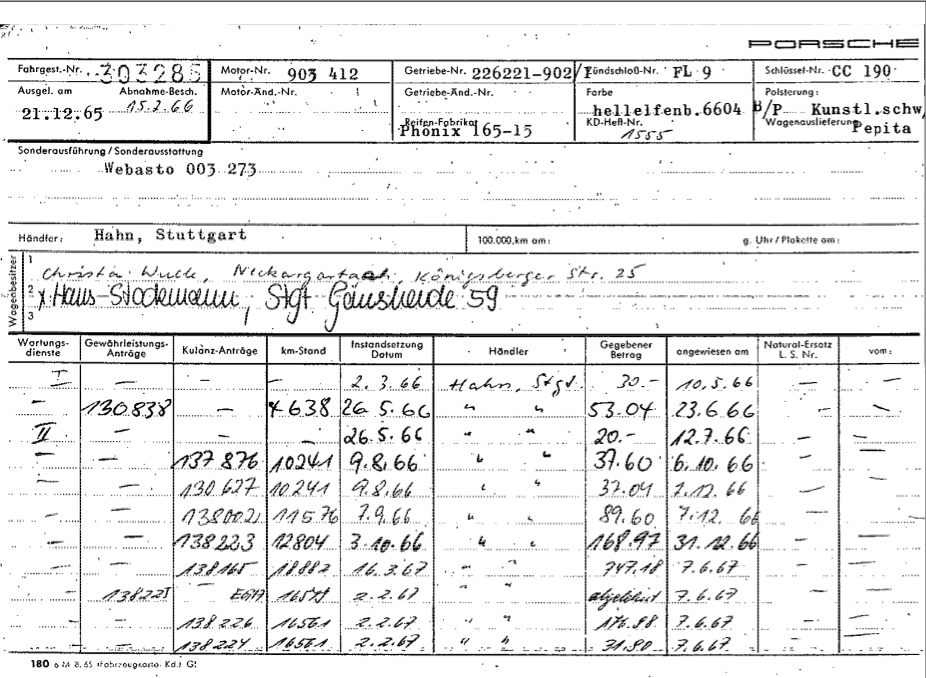 PORSCHE
Fahrgest.-Nr. 303285 Motor-Nr. 903 412 Getriebe-Nr. 226221-902/ Zündschloß-Nr. FL 9 Schlüssel-Nr. CC 190
Ausgel. am Abnahme-Besch. Motor-Änd.-Nr. Getriebe-Änd.-Nr. Farbe Polsterung:
21.12.65 15.2.66 hellelfenb.6604 B/P Kunstl.schw,
Reifen-Fabrikat KD-Heft-Nr. Wagenauslieferung
Phönix 165-15 1555 Pepita
Sonderausführung / Sonderausstattung
Webasto 003 273
Händler: Hahn, Stuttgart 100.000 km am: g. Uhr / Plakette am:
Wagenbesitzer
1 Christa Wuck, Neckargartach, Königsberger Str. 25
2 x Hans Stockmann, Stgt Gänsheide 59
3
Wartungs-dienste Gewährleistungs-Anträge Kulanz-Anträge km-Stand Instandsetzung Datum Händler Gegebener Betrag angewiesen am Natural-Ersatz L. S. Nr. vom:
I — — — 2.3.66 Hahn, Stgt. 30.- 10.5.66 — —
— 130.838 — 4638 26.5.66 " " 53.04 23.6.66 — —
II — — — 26.5.66 " " 20.- 12.7.66 — —
— — 137876 10241 9.8.66 " " 37.60 6.10.66 — —
— — 130627 10241 9.8.66 " " 37.04 2.12.66 — —
— — 11576 7.9.66 " " 89.60 7.12.66 — —
— — 138223 12804 3.10.66 " " 168.97 31.12.66 — —
— — 138165 18882 16.3.67 " " 747.18 7.6.67 — —
— 138225 2.2.67 " " abgelehnt 7.6.67 — —
— — 138226 16561 2.2.67 " " 176.88 7.6.67 — —
— — 138224 16561 2.2.67 " " 31.90 7.6.67 — —
180